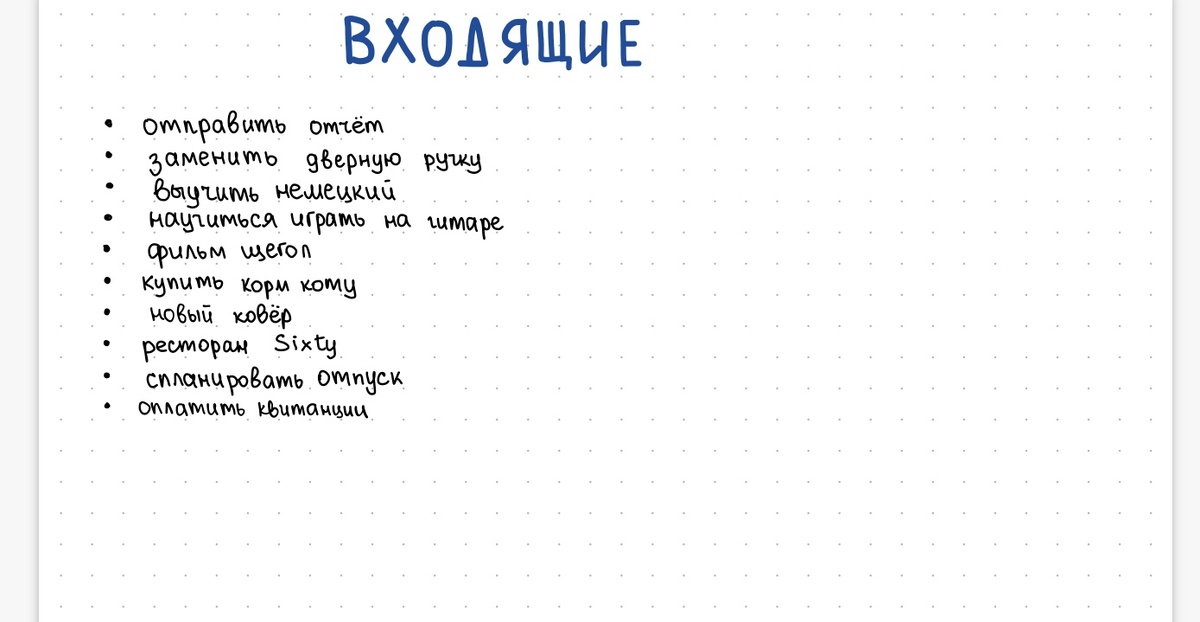 ВХОДЯЩИЕ
• отправить отчёт
• заменить дверную ручку
• выучить немецкий
• научиться играть на гитаре
• фильм щегол
• купить корм коту
• новый ковёр
• ресторан Sixty
• спланировать отпуск
• оплатить квитанции